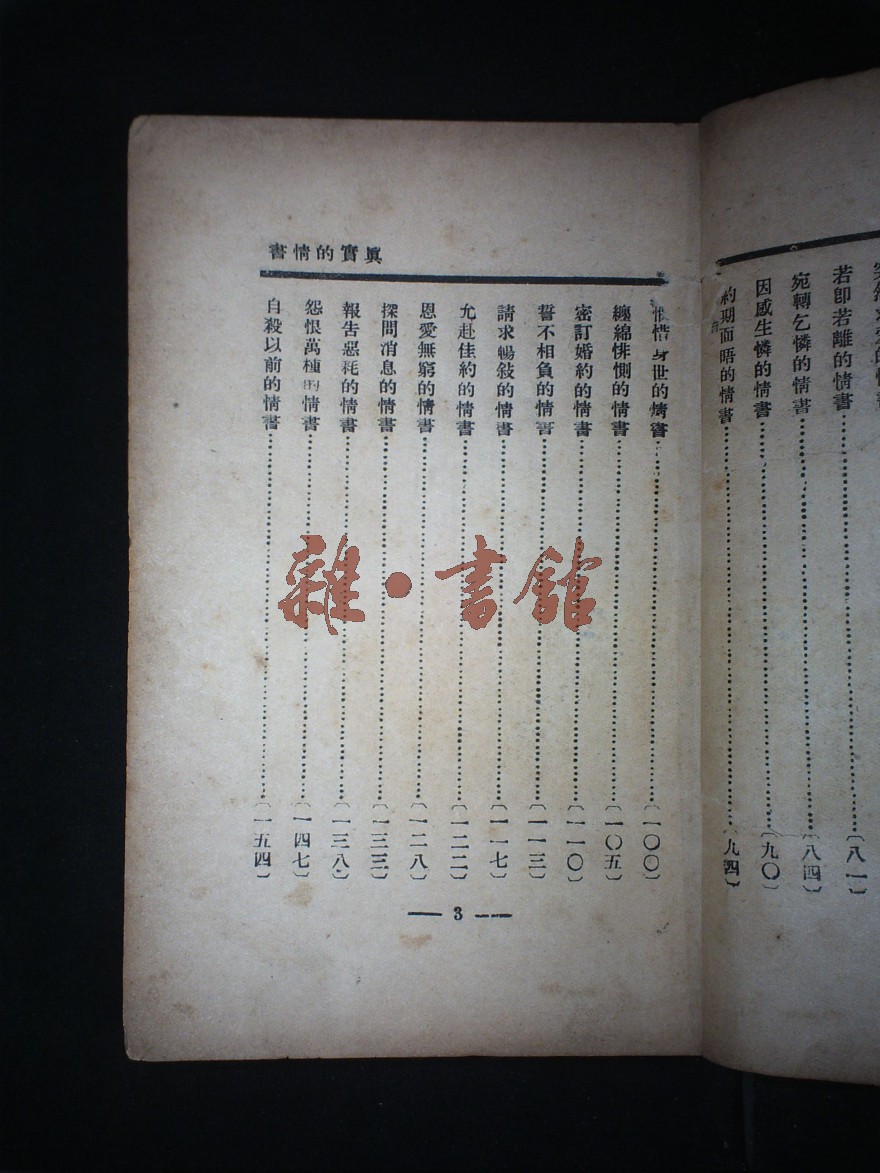 若卽若離的情書〔八一〕
宛轉乞憐的情書〔八四〕
因感生憐的情書〔九〇〕
約期面晤的情書〔九四〕
眞實的情書
惜身世的情書〔一〇〇〕
纏綿悱惻的情書〔一〇五〕
密訂婚約的情書〔一一〇〕
誓不相負的情書〔一一三〕
請求暢敍的情書〔一一七〕
允赴佳約的情書〔一二二〕
恩愛無窮的情書〔一二八〕
探問消息的情書〔一三三〕
報告惡耗的情書〔一三八〕
怨恨萬種的情書〔一四七〕
自殺以前的情書〔一五四〕
3
雜·書館